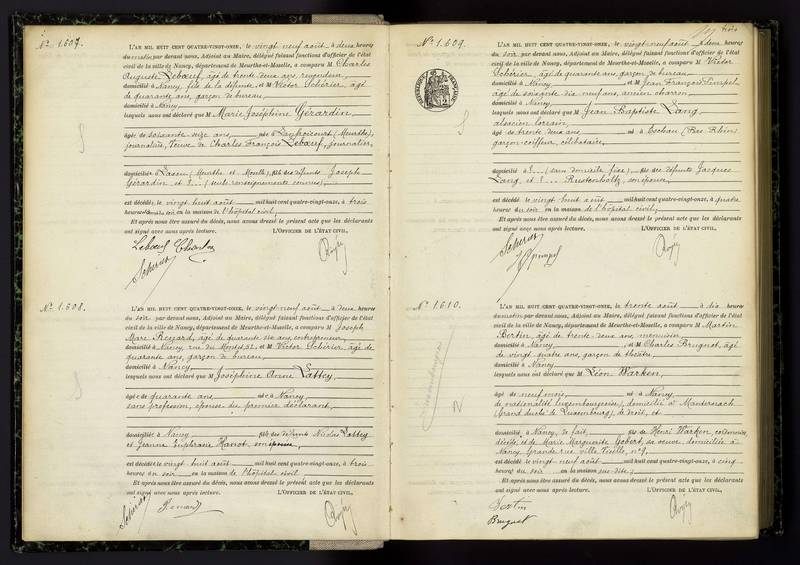 N° 1.607.
L'AN MIL HUIT CENT QUATRE-VINGT-ONZE, le vingt neuf août à deux heures
du par devant nous, Adjoint au Maire, délégué faisant fonctions d'officier de l'état
civil de la ville de Nancy, département de Meurthe-et-Moselle, a comparu M Charles
Auguste Lebœuf, âgé de trente deux ans,
domicilié à Nancy, fils de la défunte, et M Victor Schérier, âgé
de quarante ans, garçon de bureau,
domicilié à Nancy
lesquels nous ont déclaré que M Marie Joséphine Gérardin,
âgée de soixante seize ans, née à (Meurthe),
journalière, Veuve de Charles François Lebœuf, journalier,
domiciliée à (Meurthe et Moselle), fille des défunts Joseph
Gérardin et ?... (seuls renseignements connus),
est décédée, le vingt huit août mil huit cent quatre-vingt-onze, à trois
heures du soir, en la maison de l'hôpital civil,
Et après nous être assuré du décès, nous avons dressé le présent acte que les déclarants
ont signé avec nous après lecture. L'OFFICIER DE L'ÉTAT CIVIL,
Lebœuf Charles
Schérier
N° 1.608.
L'AN MIL HUIT CENT QUATRE-VINGT-ONZE, le vingt neuf août à deux heures
du soir par devant nous, Adjoint au Maire, délégué faisant fonctions d'officier de l'état
civil de la ville de Nancy, département de Meurthe-et-Moselle, a comparu M Joseph
Marc Renard, âgé de quarante ans, entrepreneur,
domicilié à Nancy, rue du Montet, et M Victor Schérier, âgé de
quarante ans, garçon de bureau,
domicilié à Nancy
lesquels nous ont déclaré que M Joséphine Anne Lattey,
âgée de quarante ans née à Nancy,
sans profession, épouse du premier déclarant,
domiciliée à Nancy fille des défunts Nicolas Lattey
et Jeanne Euphrasie Hanot, son épouse,
est décédée le vingt huit août mil huit cent quatre-vingt-onze, à trois
heures du soir en la maison de l'hôpital civil
Et après nous être assuré du décès, nous avons dressé le présent acte que les déclarants
ont signé avec nous après lecture. L'OFFICIER DE L'ÉTAT CIVIL,
Schérier Renard
N° 1.609.
L'AN MIL HUIT CENT QUATRE-VINGT-ONZE, le vingt neuf août à deux heures
du soir par devant nous, Adjoint au Maire, délégué faisant fonctions d'officier de l'état
civil de la ville de Nancy, département de Meurthe-et-Moselle, a comparu M Victor
Schérier, âgé de quarante ans, garçon de bureau,
domicilié à Nancy et M Jean François Pimpel,
âgé de soixante dix neuf ans, ancien charron,
domicilié à Nancy
lesquels nous ont déclaré que M Jean Baptiste Lang,
alsacien lorrain,
âgé de trente deux ans né à Eschau (Bas Rhin)
garçon-coiffeur, célibataire,
domicilié à ?... (sans domicile fixe), fils des défunts Jacques
Lang, et ?... Rustenholtz, son épouse,
est décédé le vingt huit août mil huit cent quatre-vingt-onze, à quatre
heures du soir en la maison de l'hôpital civil,
Et après nous être assuré du décès, nous avons dressé le présent acte que les déclarants
ont signé avec nous après lecture. L'OFFICIER DE L'ÉTAT CIVIL,
Schérier
Pimpel
N° 1.610.
L'AN MIL HUIT CENT QUATRE-VINGT-ONZE, le trente août à dix heures
du matin par devant nous, Adjoint au Maire, délégué faisant fonctions d'officier de l'état
civil de la ville de Nancy, département de Meurthe-et-Moselle, a comparu M Martin
Bertin, âgé de trente deux ans, menuisier,
domicilié à Nancy, et M Charles Bruguot, âgé
de vingt quatre ans, garçon de théâtre,
domicilié à Nancy
lesquels nous ont déclaré que M Léon Warken,
âgé de neuf mois né à Nancy,
de nationalité luxembourgeoise, domicilié à Manternach
(Grand duché de Luxembourg), de droit, et
domicilié à Nancy, de fait, fils de Henri Warken, cordonnier,
décédé, et de Marie Marguerite Gobert, sa veuve, domiciliée à
Nancy, Grande rue ville Vieille, n° 9,
est décédé le vingt neuf août mil huit cent quatre-vingt-onze, à cinq
heures du soir en la maison sus-dite,
Et après nous être assuré du décès, nous avons dressé le présent acte que les déclarants
ont signé avec nous après lecture. L'OFFICIER DE L'ÉTAT CIVIL,
Bertin
Bruguot